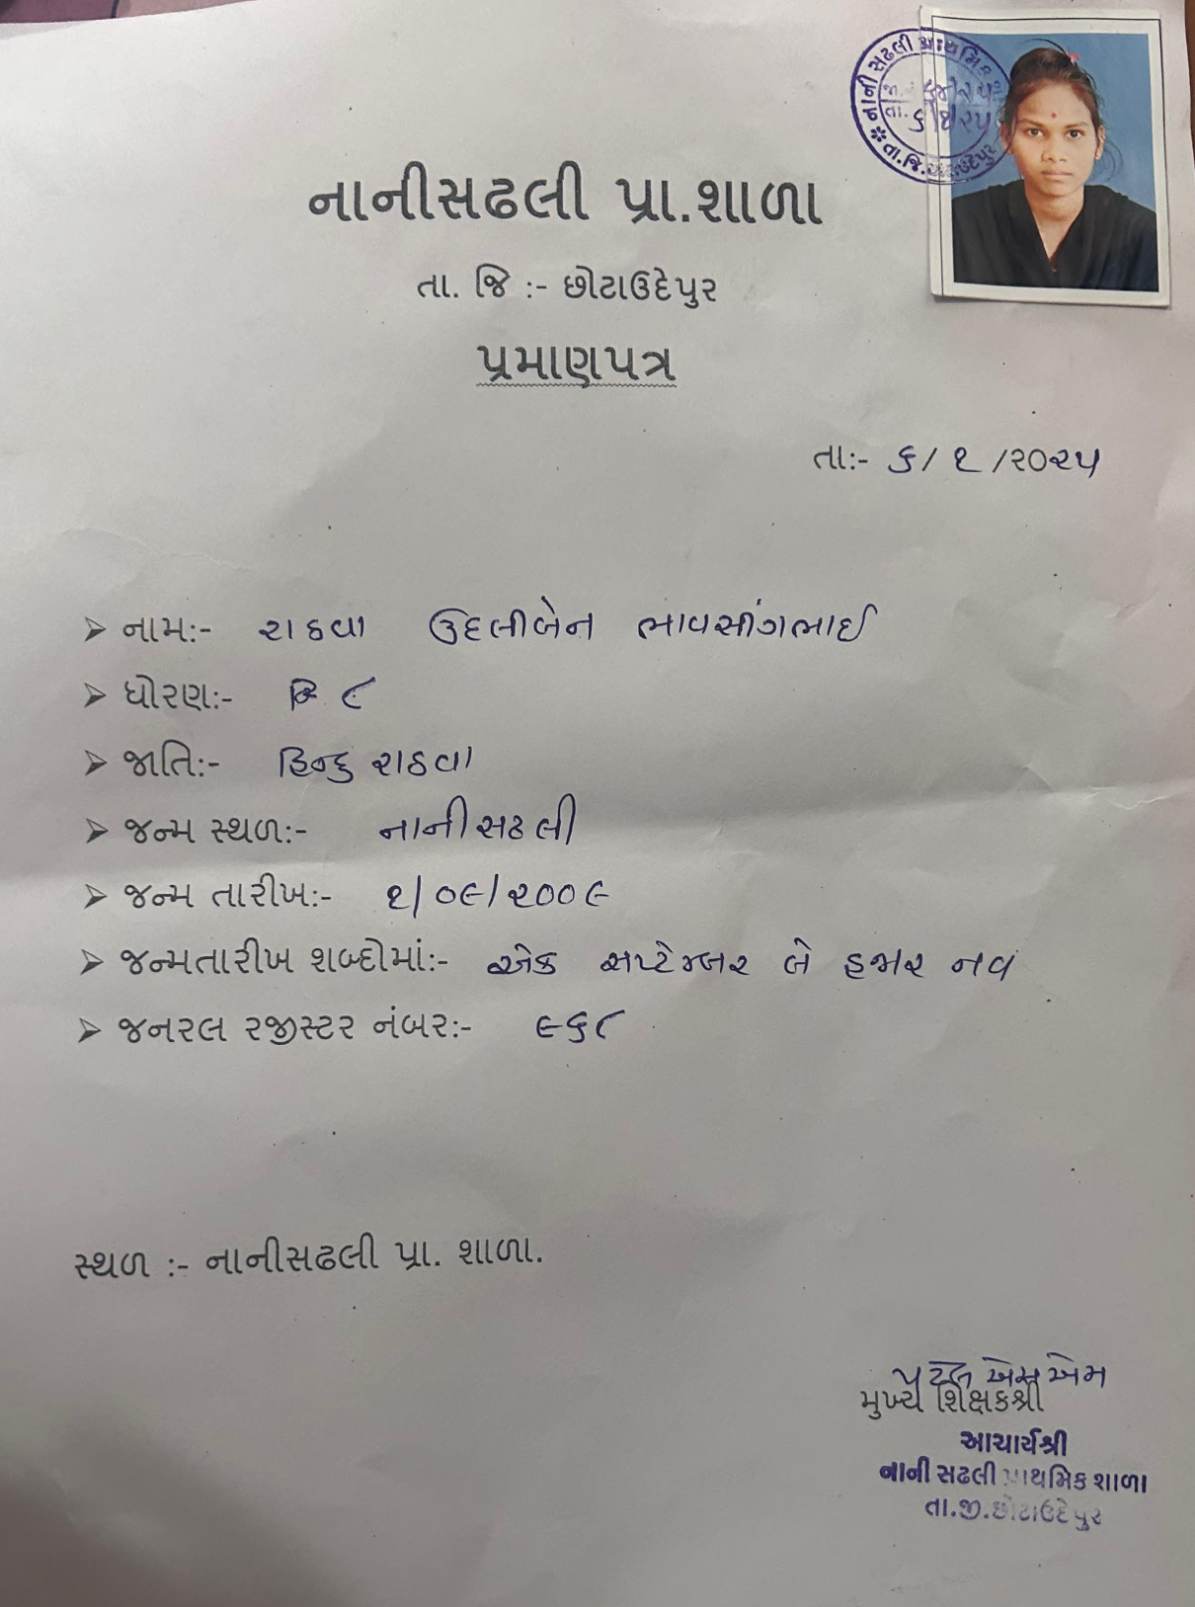 નાની સઢલી પ્રાથમિક
તા.જિ.છોટાઉદેપુર
નાનીસઢલી પ્રા.શાળા
તા. જિ :- છોટાઉદેપુર
પ્રમાણપત્ર
તા:- ૬/ ૧ /૨૦૨૫
➢ નામ:- રાઠવા ઉદલીબેન ભાવસીંગભાઈ
➢ ધોરણ:- ૮
➢ જાતિ:- હિન્દુ રાઠવા
➢ જન્મ સ્થળ:- નાનીસઢલી
➢ જન્મ તારીખ:- ૧/૦૯/૨૦૦૯
➢ જન્મતારીખ શબ્દોમાં:- એક સપ્ટેમ્બર બે હજાર નવ
➢ જનરલ રજીસ્ટર નંબર:- ૯૬૮
સ્થળ :- નાનીસઢલી પ્રા. શાળા.
પટેલ એમ એમ
મુખ્ય શિક્ષકશ્રી
આચાર્યશ્રી
નાની સઢલી પ્રાથમિક શાળા
તા.જી.છોટાઉદેપુર